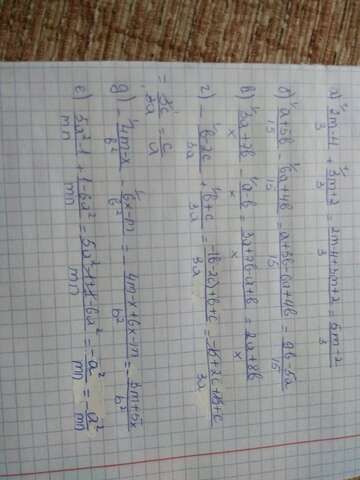 а) 2m-4/3 + 3m+2/3 = 2m-4+3m+2/3 = 5m-2/3
б) a+5b/15 - 6a+4b/15 = a+5b-6a+4b/15 = 9b-5a/15
в) 3a+7b/x - a-b/x = 3a+7b-a+b/x = 2a+8b/x
г) - b-2c/3a + b+c/3a = -(b-2c)+b+c/3a = -b+2c+b+c/3a
= 3c/3a = c/a
д) - 4m-x/b² - 6x-m/b² = - 4m-x+6x-m/b² = 3m+5x/b²
е) 5a²-1/mn + 1-6a²/mn = 5a²-1+1-6a²/mn = -a²/mn = - a²/mn